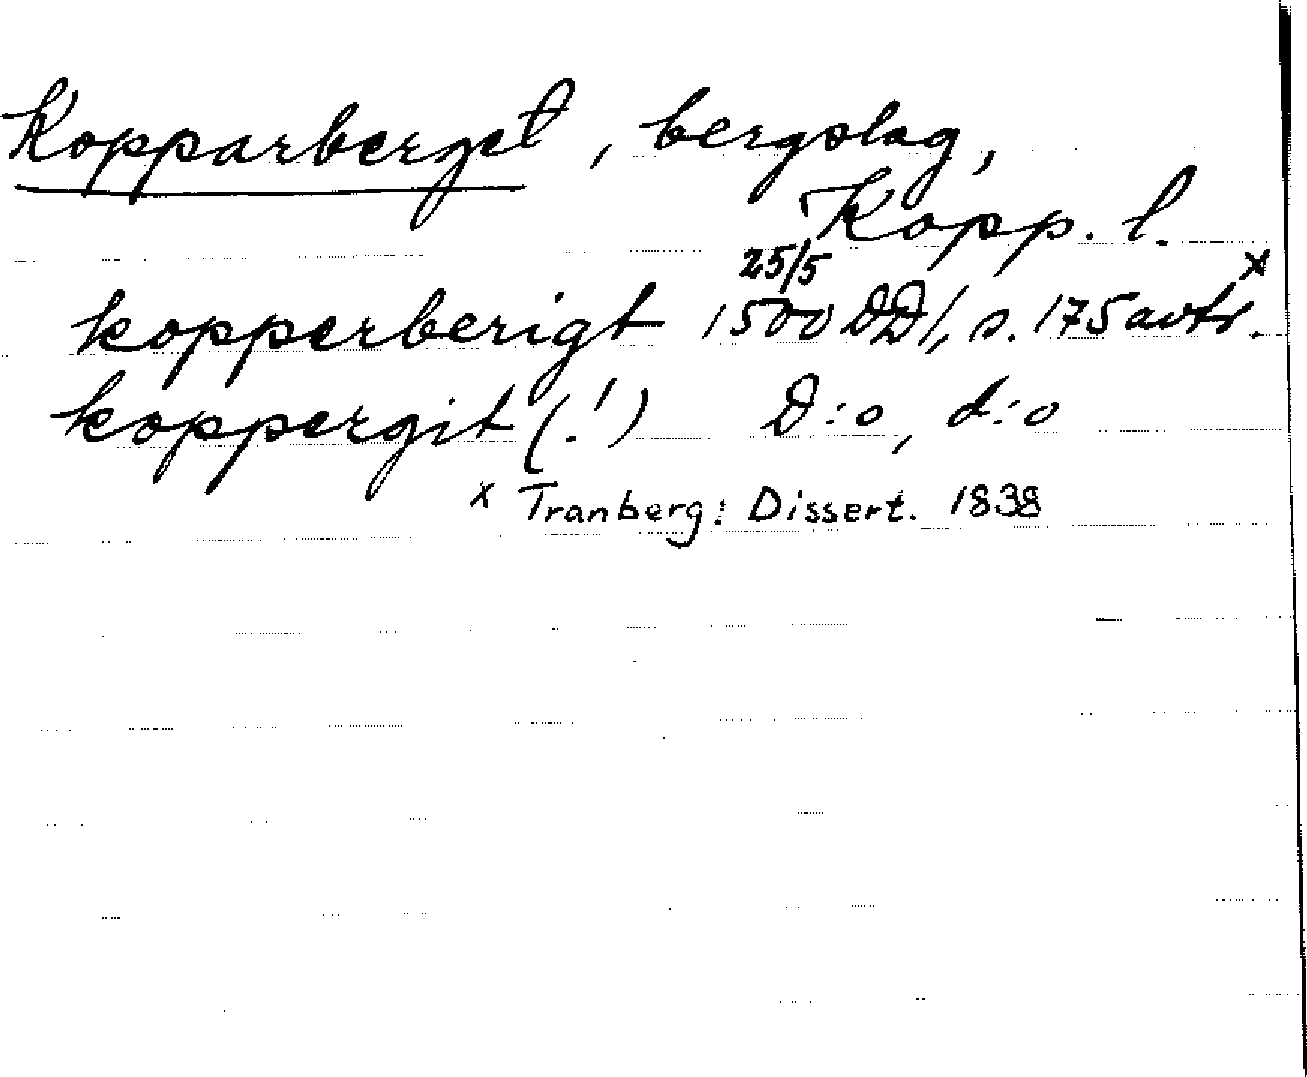 Kopparberget, bergslag,
Kopp. l.
kopperberigt 25/5 1500 DD 1, s. 175 avtr. x
koppergit (!) D:o, d:o
x Tranberg: Dissert. 1838